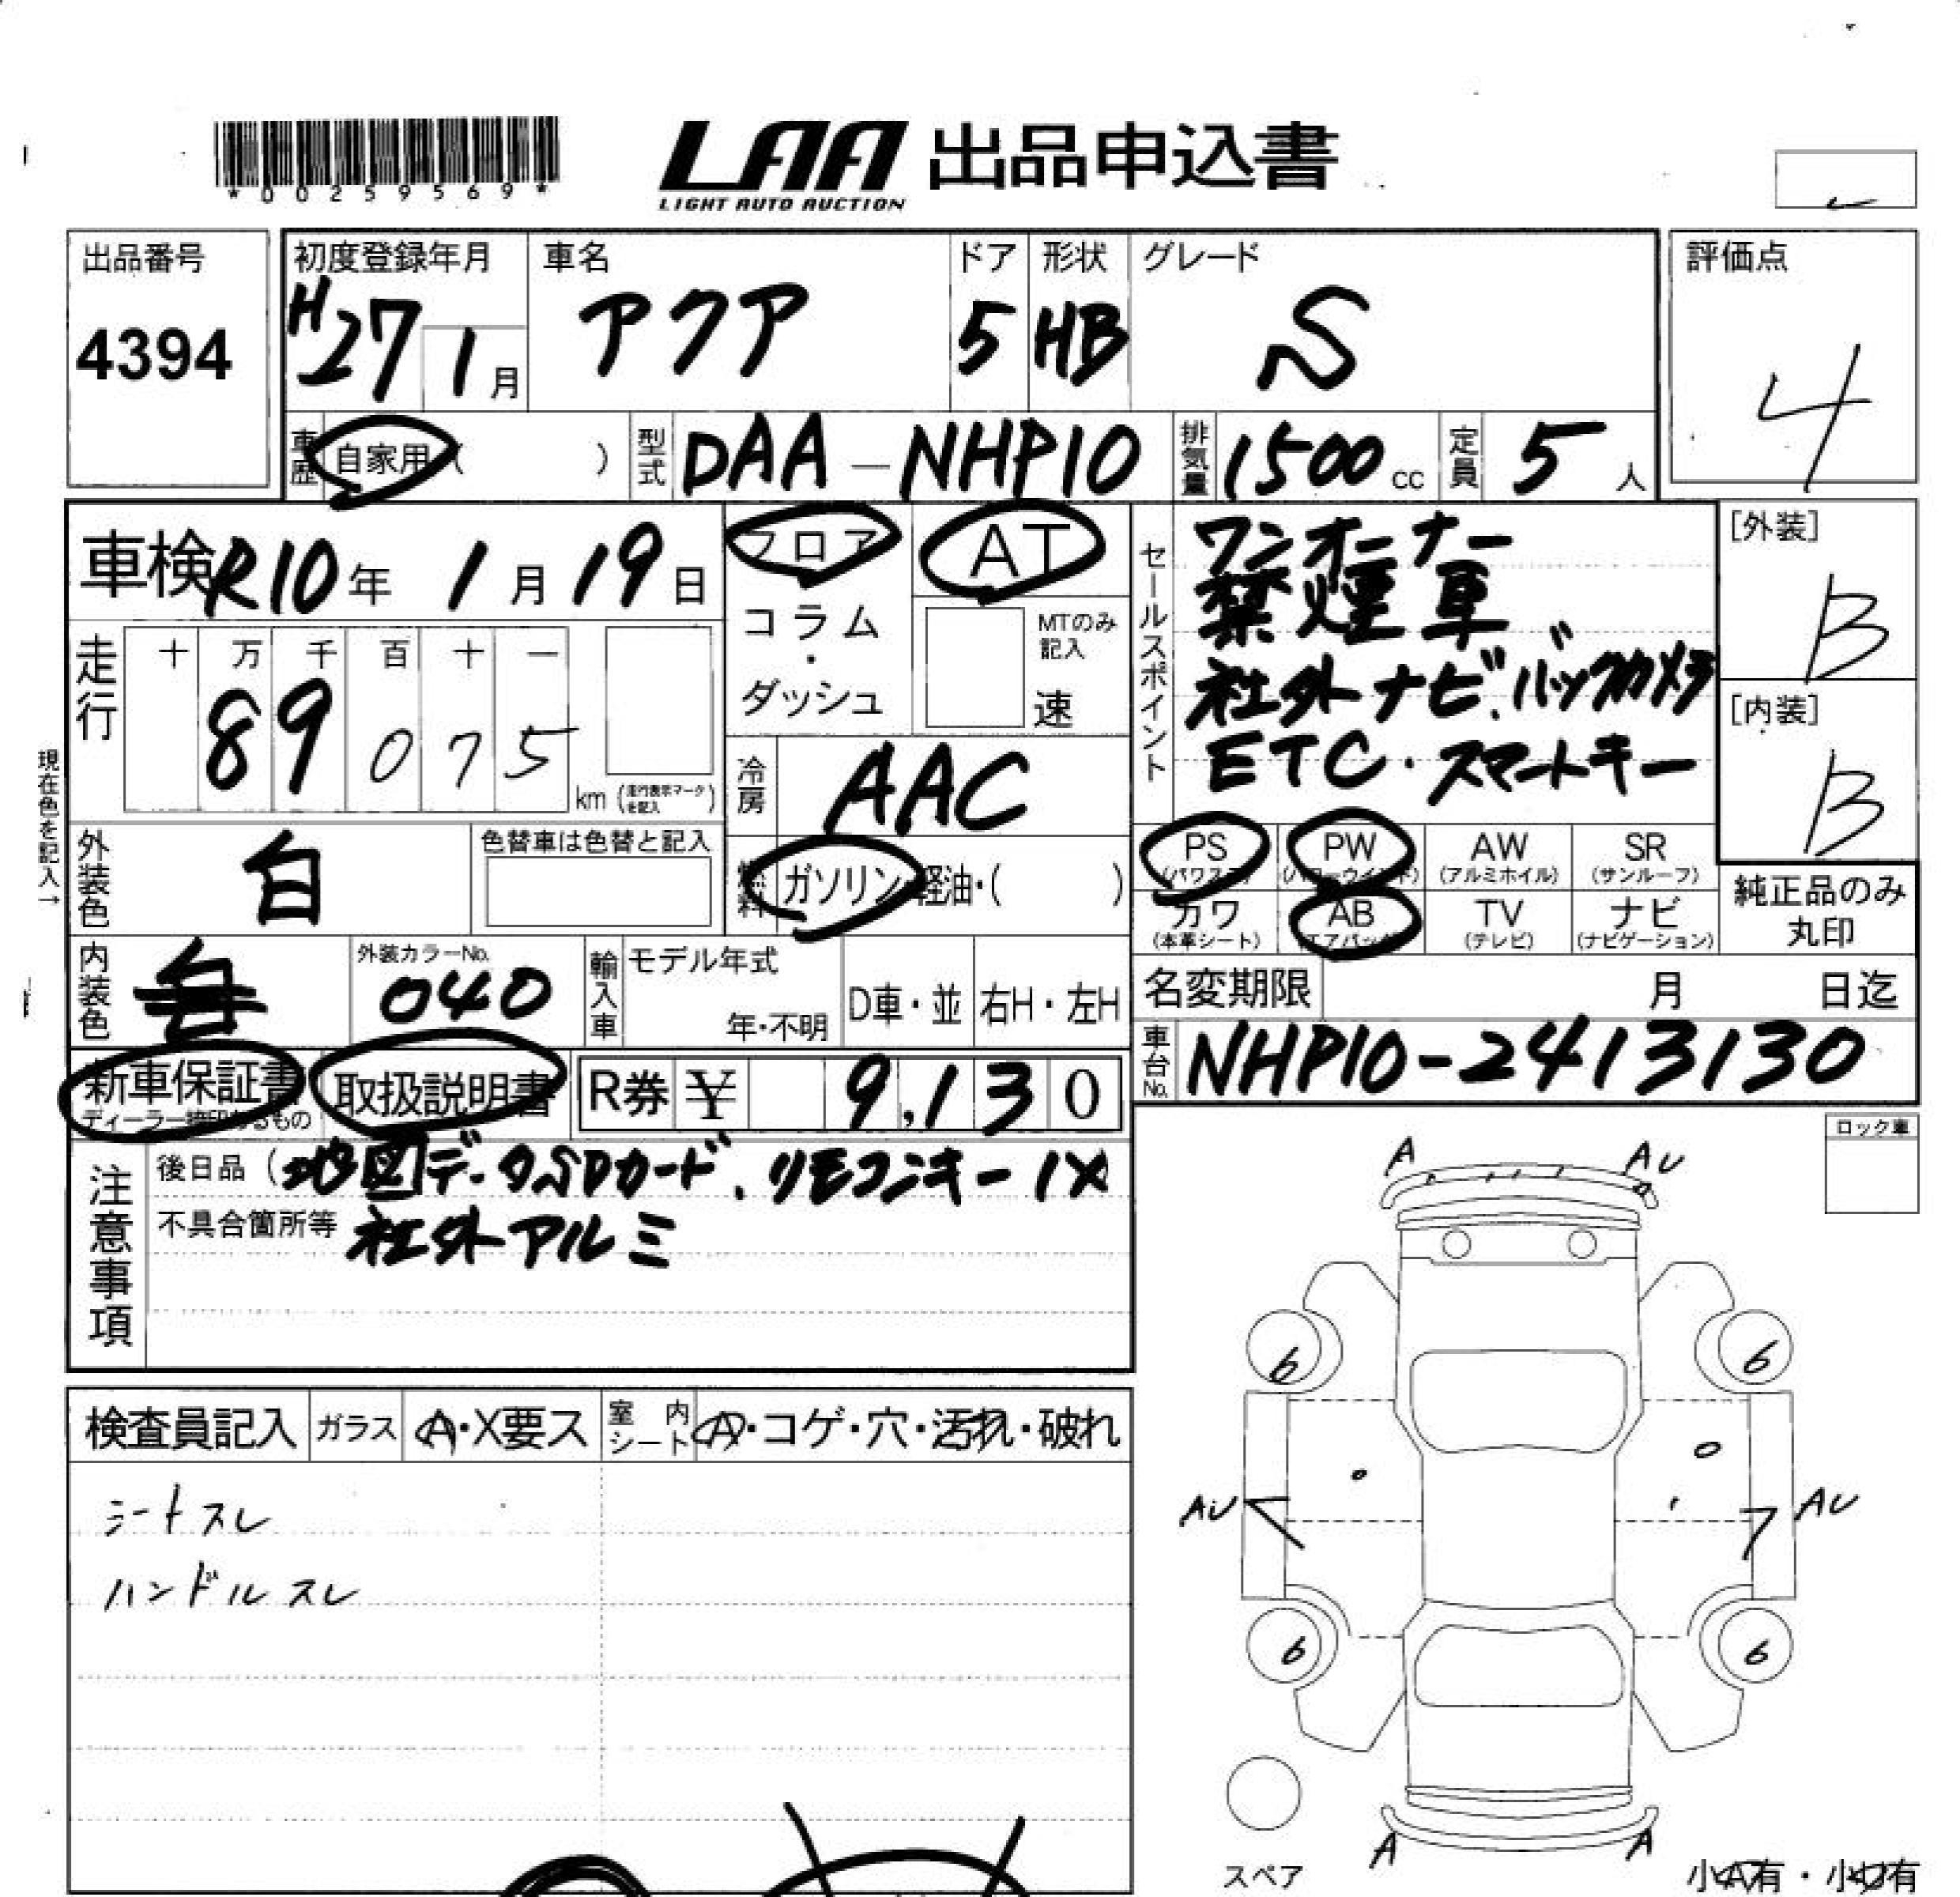 *00259569*
LAA 出品申込書
LIGHT AUTO AUCTION
出品番号
4394
初度登録年月
H27 1月
車名
アクア
ドア
5
形状
HB
グレード
S
評価点
4
車歴 自家用 ( )
型式 DAA-NHP10
排気量 1500 cc
定員 5 人
車検 R10年 1月19日
フロア
コラム
・
ダッシュ
AT
MTのみ記入
速
セールスポイント
ワンオーナー
禁煙車
社外ナビ.バックカメラ
ETC・スマートキー
[外装]
B
[内装]
B
走行
十 万 千 百 十 一
8 9 0 7 5
km (走行表示マークを記入)
現在色を記入→
冷房 AAC
外装色 白
色替車は色替と記入
燃料 ガソリン・軽油・( )
PS (パワステ)
PW (パワーウインド)
AW (アルミホイル)
SR (サンルーフ)
カワ (本革シート)
AB (エアバック)
TV (テレビ)
ナビ (ナビゲーション)
純正品のみ
丸印
内装色
外装カラーNo.
040
輸入車
モデル年式
年・不明
D車・並
右H・左H
名変期限 月 日迄
車台No. NHP10-2413130
新車保証書
ディーラー捺印あるもの
取扱説明書
R券 ¥ 9,130
注意事項
後日品(地図データSDカード、リモコンキー1X
不具合箇所等 社外アルミ
ロック車
検査員記入
ガラス A・X要ス
室内シート A・コゲ・穴・汚れ・破れ
シートスレ
ハンドルスレ
A AU
6 6
AU AU
6 6
A A
スペア
小A有・小U有